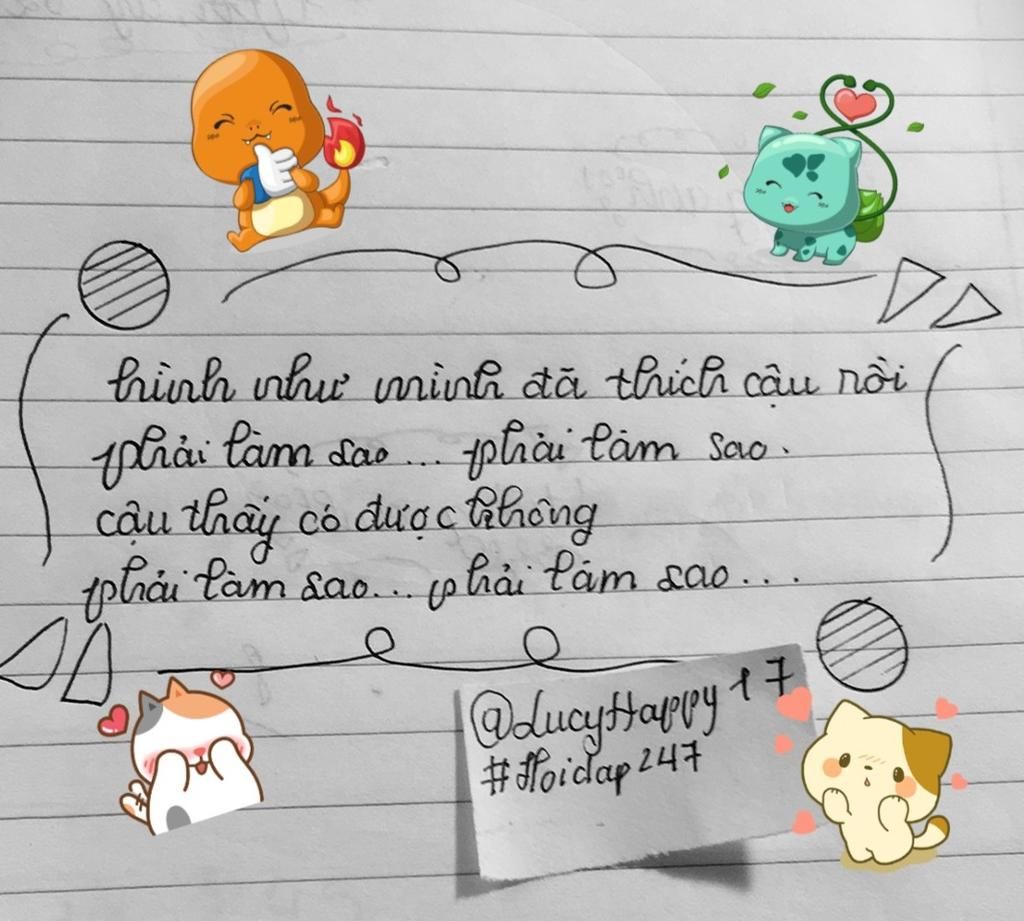 hình như mình đã thích cậu rồi
phải làm sao... phải làm sao.
cậu thấy có được không
phải làm sao... phải làm sao...
@LucyHappy17
#Hoidap247